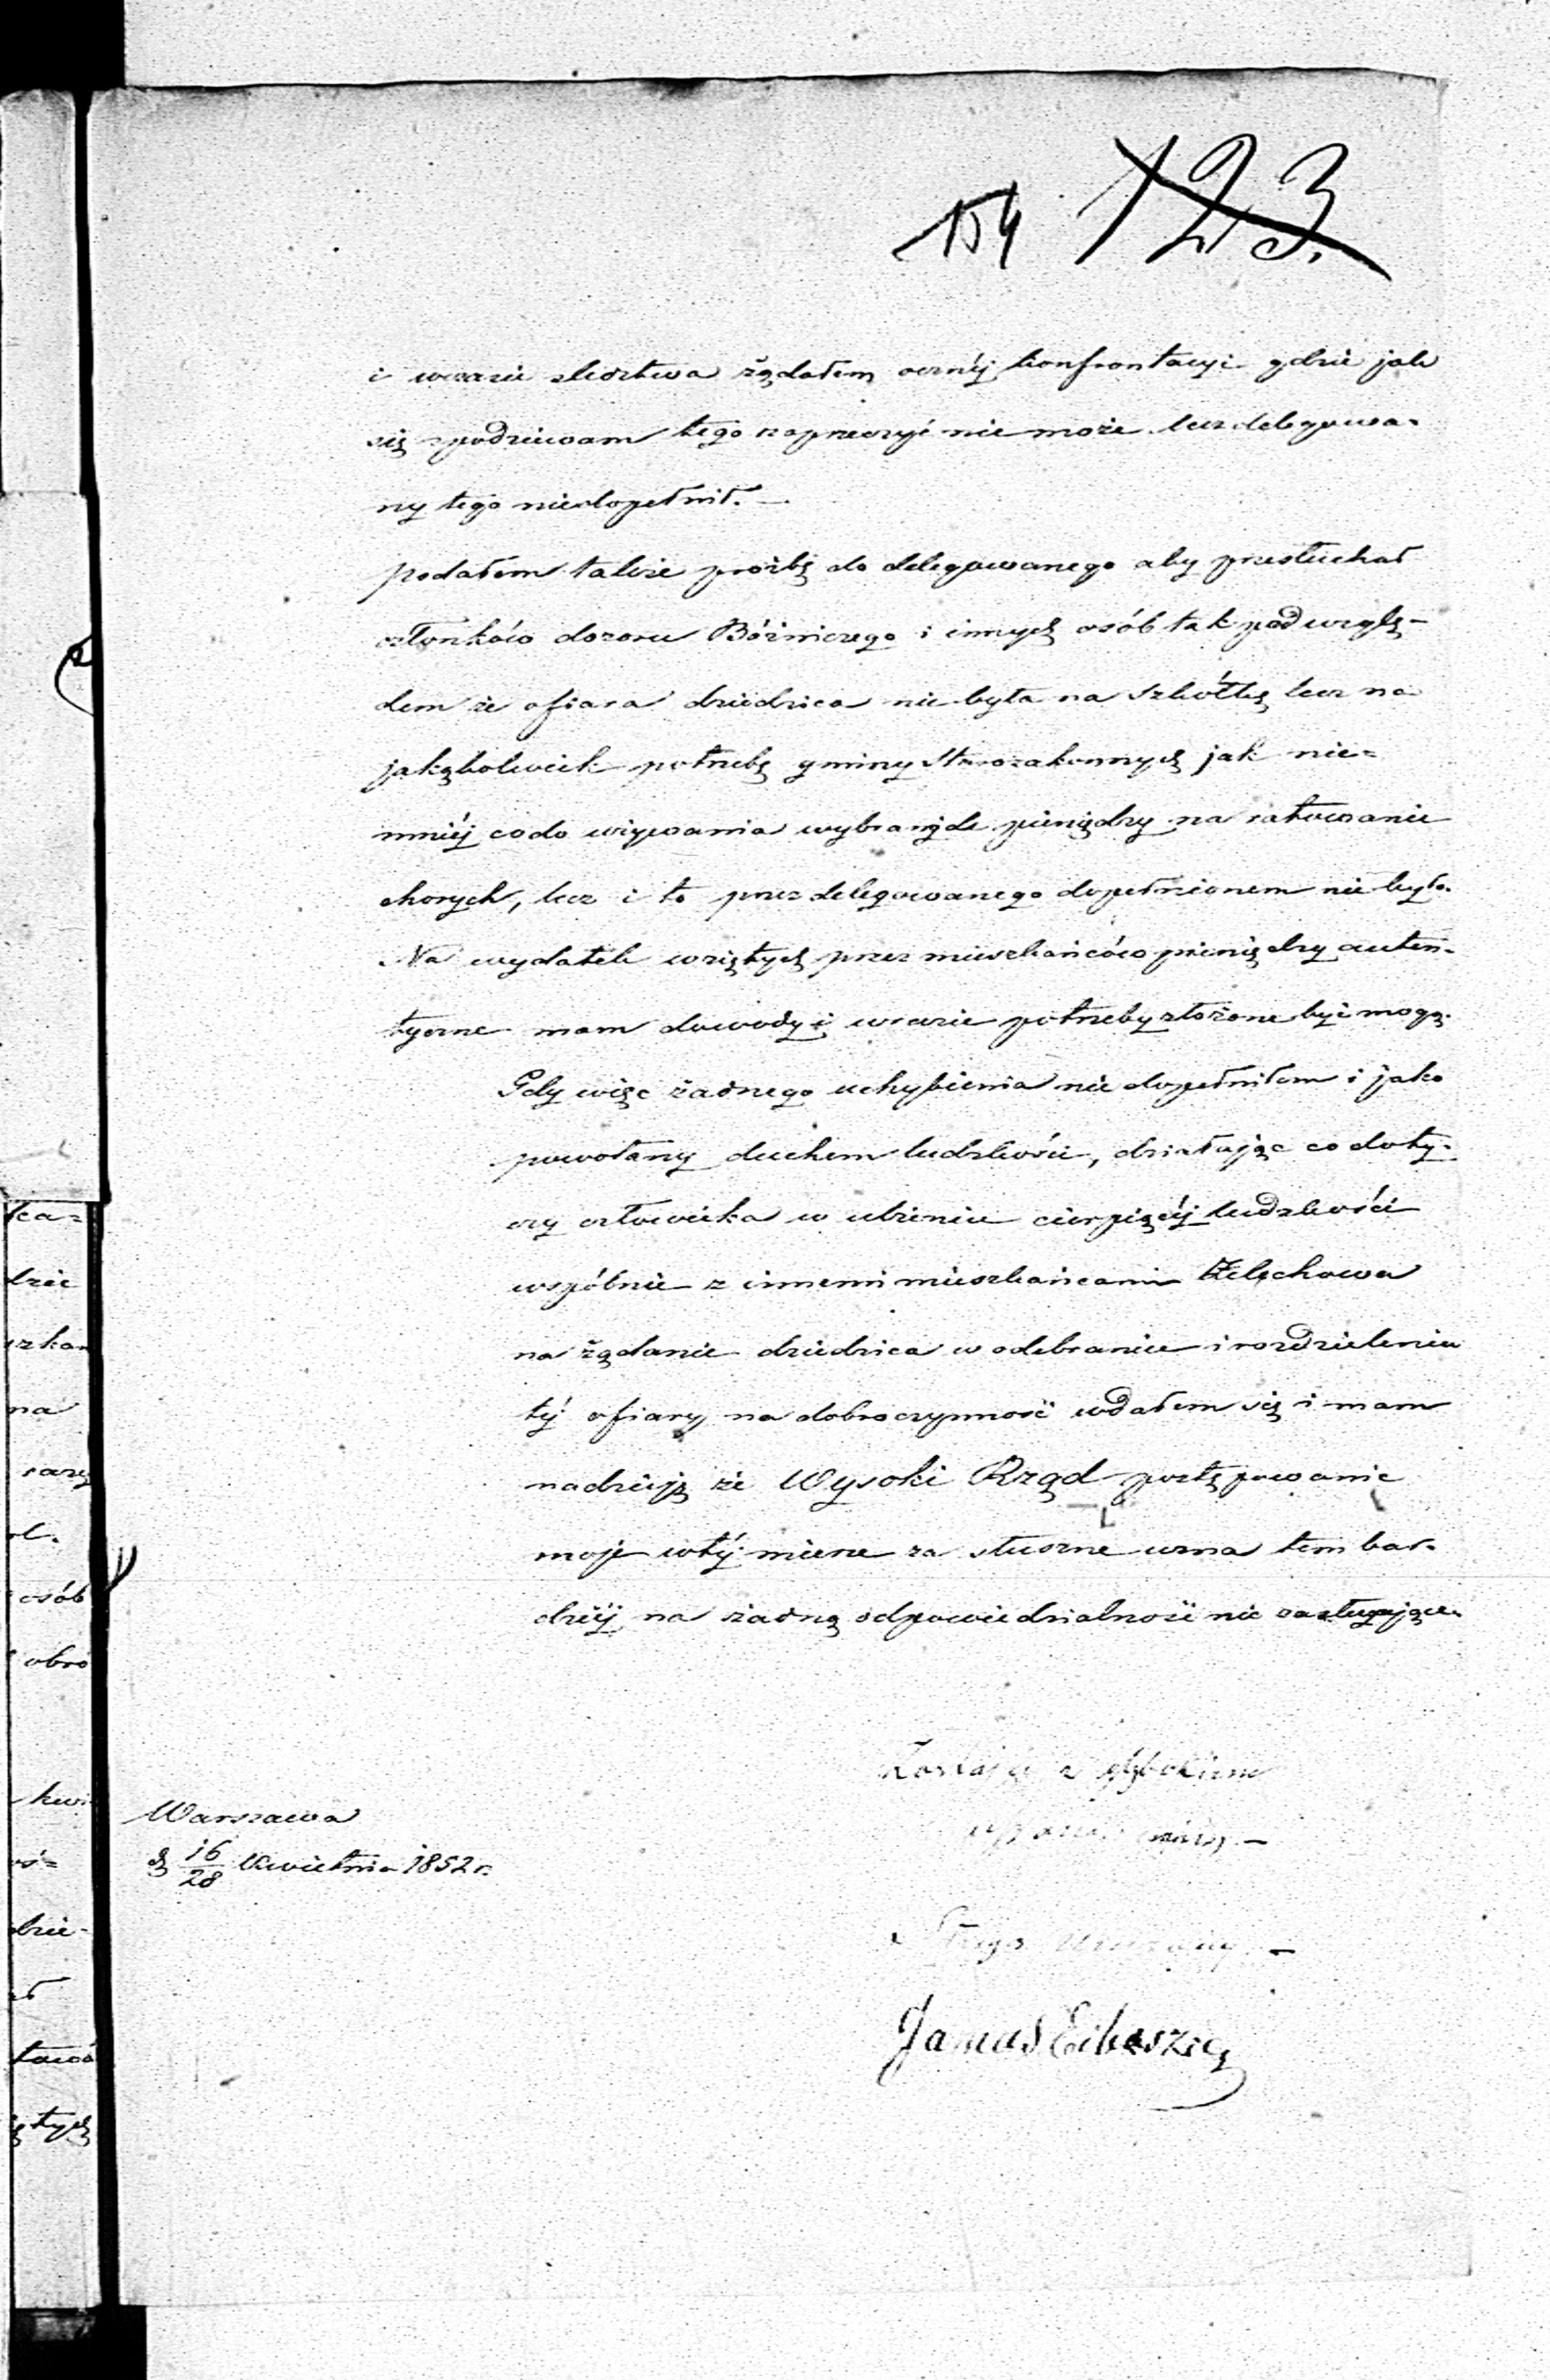 154 123.
i wczasie sledztwa żądałem ocznéj konfrontacyi gdzie jak
się spodziewam tego zaprzeczyć nie może lecz delegowa-
ny tego niedopełnił. —
podałem także prośbę do delegowanego aby przesłuchał
członków dozoru Bóżniczego i innych osób tak pod wzglę-
dem że ofiara dziedzica nie była na szkółkę lecz na
jakąkolwiek potrzebę gminy Starozakonnych jak nie-
mniéj co do używania pieniędzy na ratowanie
chorych, lecz i to przez delegowanego dopełnionem nie było.
Na wydatek wziętych przez mieszkańców pieniędzy auten-
tyczne mam dowody i wrazie potrzeby złożone być mogą.
Gdy więc żadnego uchybienia nie dopełniłem i jako
powołany duchem ludzkości, działając co doty-
czy człowieka w ulżeniu cierpiącéj ludzkości
wspólnie z innemi mieszkańcami Żelechowa
na żądanie dziedzica w odebraniu i rozdzieleniu
téj ofiary na dobroczynność wdałem się i mam
nadzieję że Wysoki Rząd postępowanie
moje w téj mierze za słuszne uzna tem bar-
dziéj na żadną odpowiedzialność nie zasługujące.
Zostaję z głębokiem
Warszawa
d 16/28 Kwietnia 1852 r.
Sługa
Janas Eibeszic
tca=
dzie
szkan
na
osób
obro
kwi
dzie-